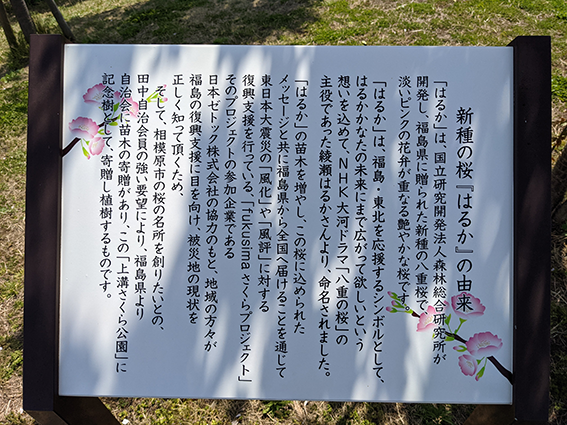 新種の桜『はるか』の由来
「はるか」は、国立研究開発法人森林総合研究所が
開発し、福島県に贈られた新種の八重桜で
淡いピンクの花弁が重なる艶やかな桜です。
「はるか」は、福島・東北を応援するシンボルとして、
はるかかなたの未来にまで広がって欲しいという
想いを込めて、NHK大河ドラマ「八重の桜」の
主役であった綾瀬はるかさんより、命名されました。
「はるか」の苗木を増やし、この桜に込められた
メッセージと共に福島県から全国へ届けることを通して
東日本大震災の「風化」や「風評」に対する
復興支援を行っている、「fukusima さくらプロジェクト」
そのプロジェクトの参加企業である
日本ゼトック株式会社の協力のもと、地域の方々が
福島の復興支援に目を向け、被災地の現状を
正しく知って頂くため、
そして、相模原市の桜の名所を創りたいとの、
田中自治会員の強い要望により、福島県より
自治会に苗木の寄贈があり、この「上溝さくら公園」に
記念樹として、寄贈し植樹するものです。